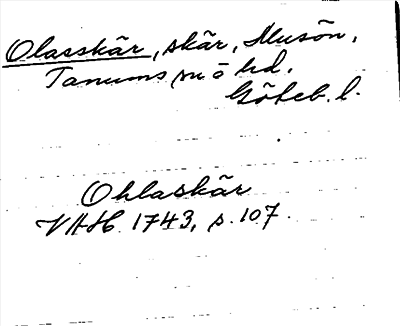 Olasskär, skär, Musön,
Tanums sn o hd.
Göteb. l.
Ohlaskär
VHH 1743, s. 107.